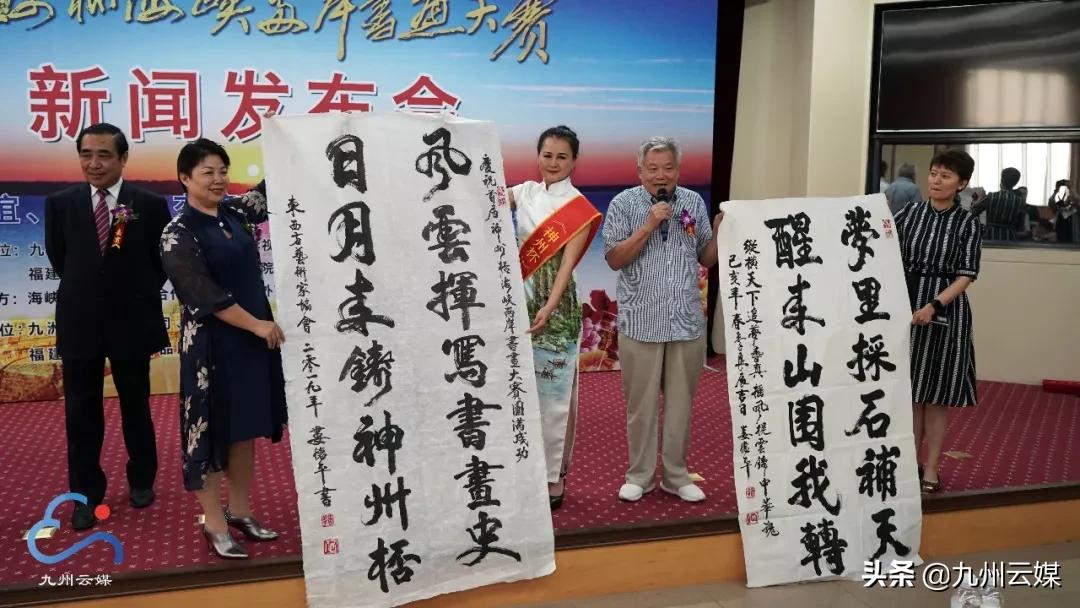 神州海峡两岸书画大赛
新闻发布会
谊、
位：九
福建
方：海峡
位：九洲
福建
嘉宾
神州杯
慶祝首届神州杯海峡两岸書畫大賽圓满成功
風雲揮寫書畫史
日月来鑄神州杯
東西方藝術家協會 二〇一九年 姜德午書
夢里採石補天
醒来山围我轉
縱横天下追夢季真 摇風提雲鑄中華魂
己亥年春
姜德午
九州云媒
头条 @九州云媒